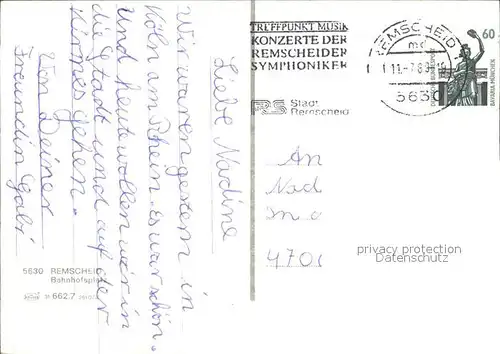 Liebe Nadine
Wir waren gestern in
Köln am Rhein. Es war schön.
Und heute wollen wir in
die Stadt und auf der
Kirmes gehen.
Von Deiner
Freundin Gabi
TREFFPUNKT MUSIK
KONZERTE DER
REMSCHEIDER
SYMPHONIKER
REMSCHEID
mc
5630
Stadt
Remscheid
60
BAVARIA MÜNCHEN
An
Nad
In
470
privacy protection
Datenschutz
5630 REMSCHEID
662.7